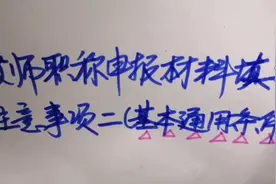 师职称申报材料填
注意事项二(基本通用条